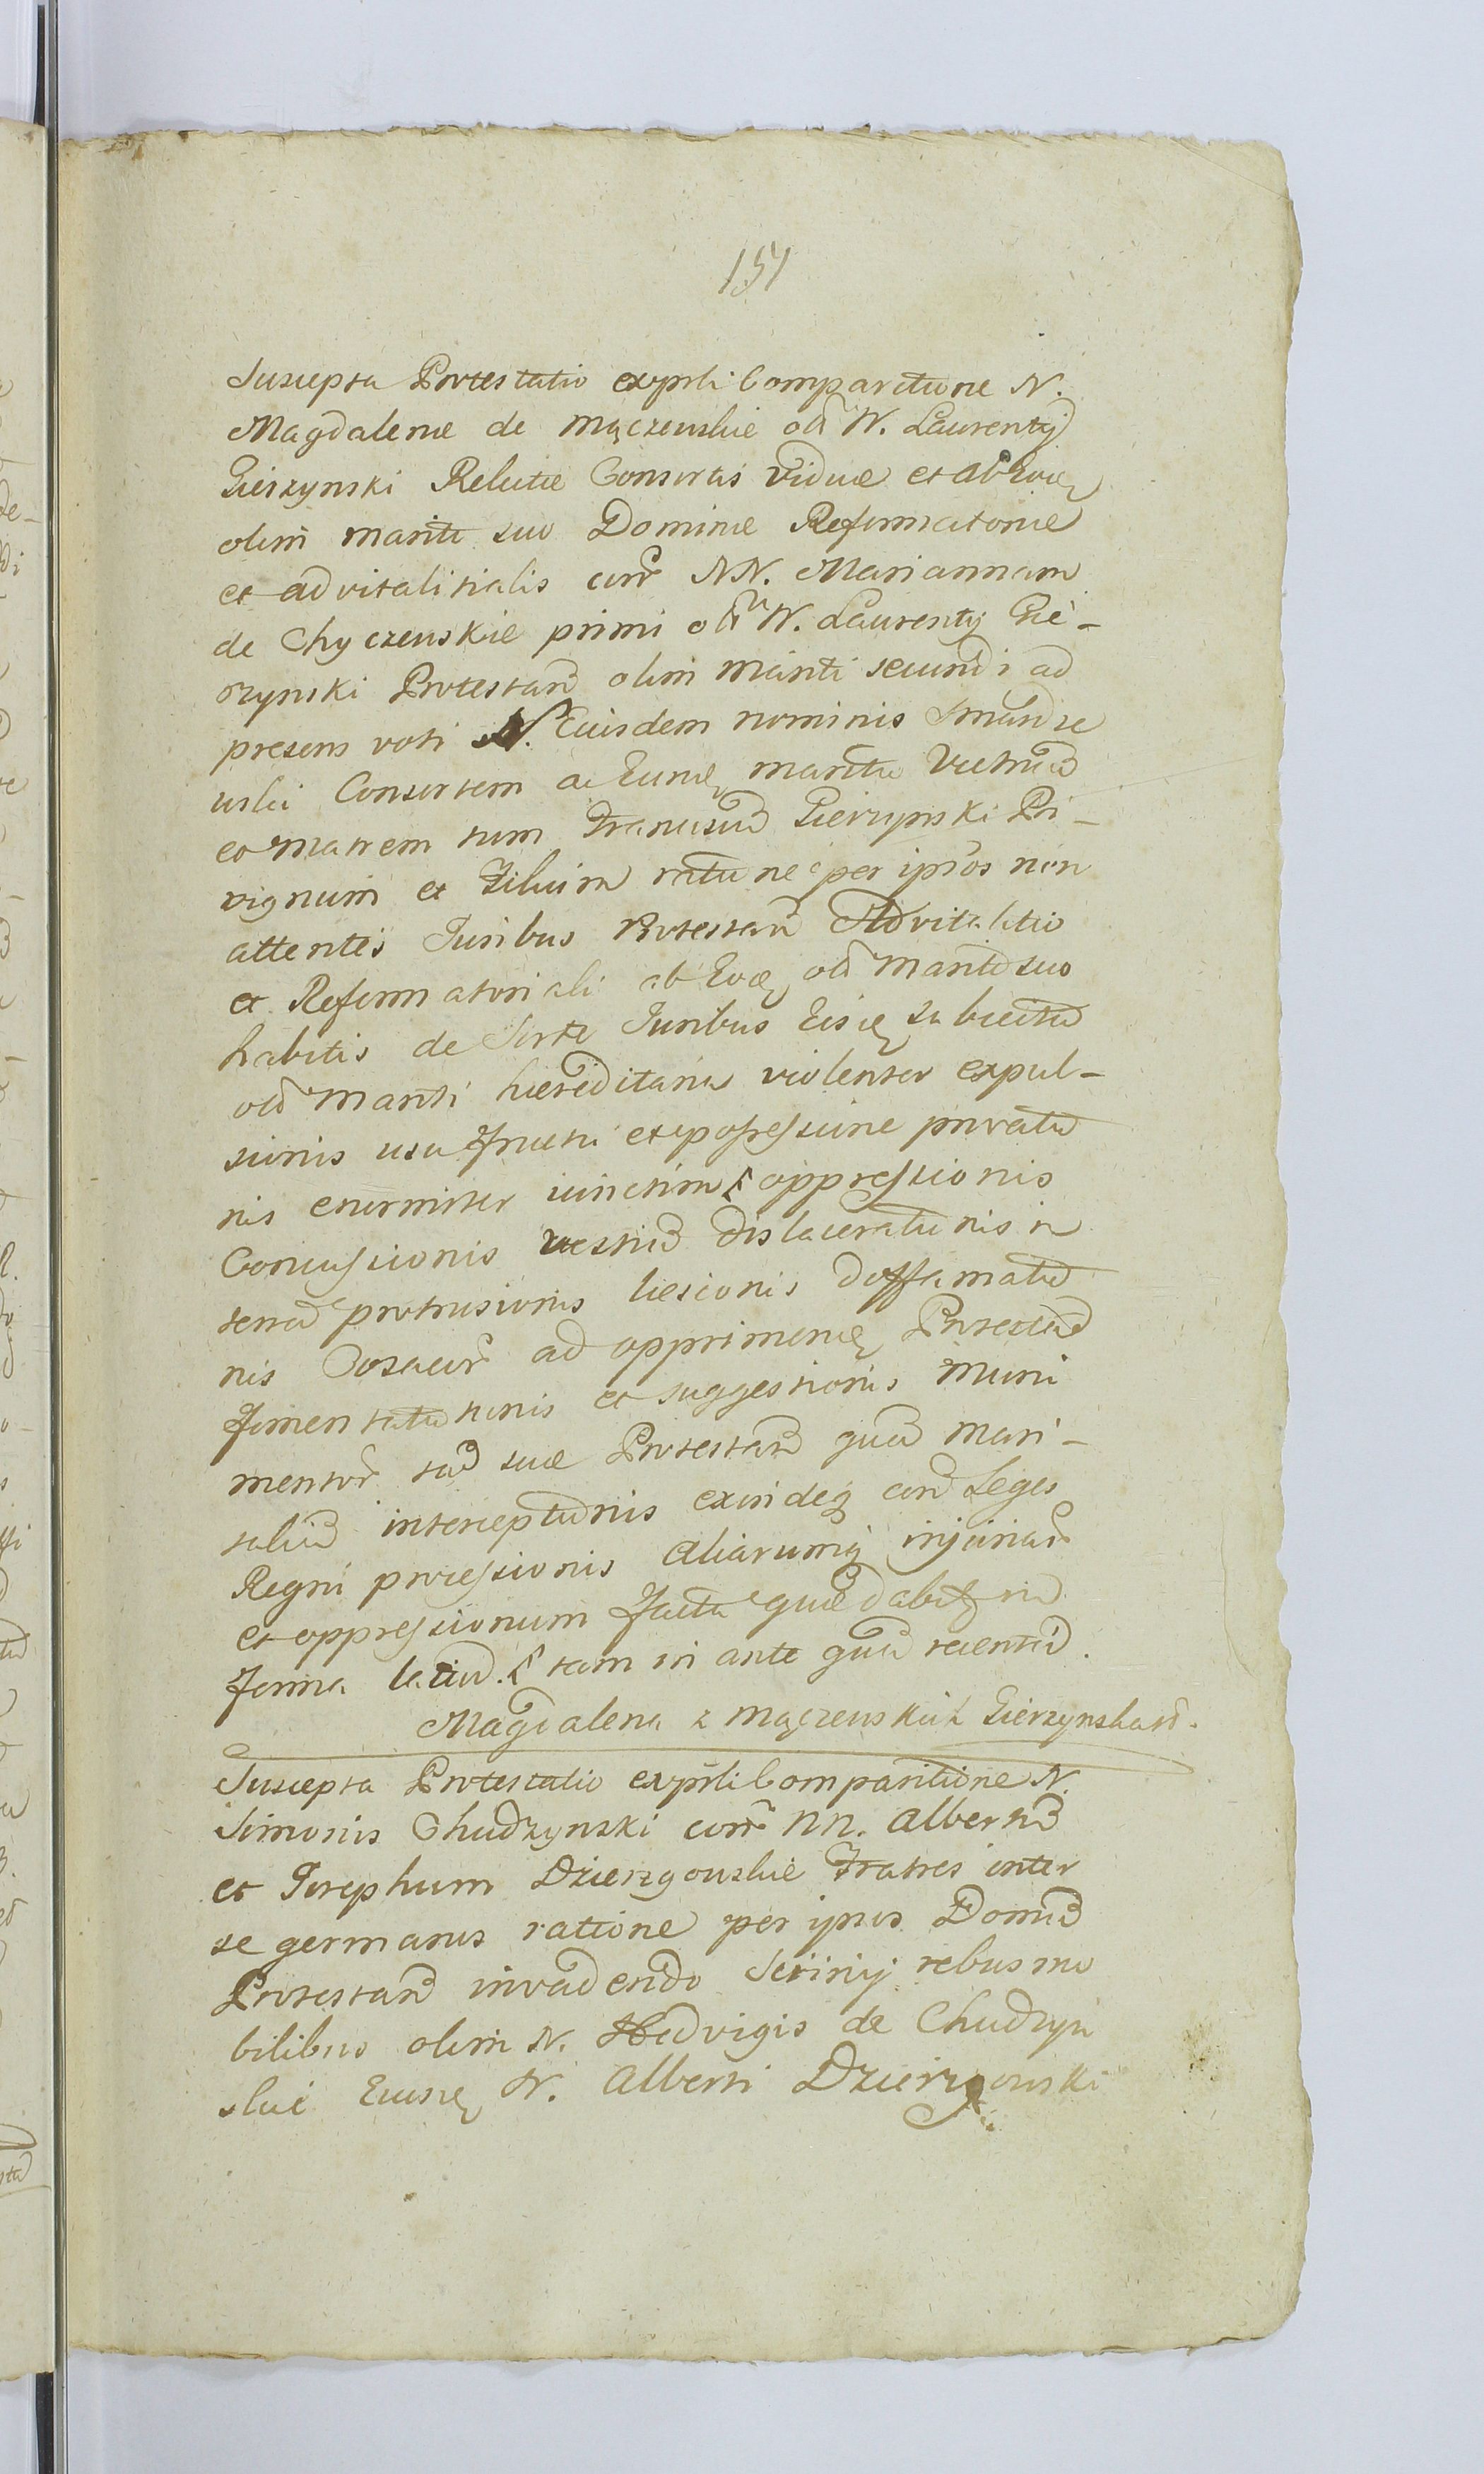 151
Suscepta Protestatio exprsli Comparitione N.
Magdalenæ de Mączewskie olī N. Laurentij
Gierzynski Relictæ Consortis viduæ et ab Eoq
olim mariti suo Dominæ Reformatoriæ
et advitalitialis con͠r NN. Mariannam
de Chyczewskie primi olī N. Laurentij Gie-
rzynski Protestan͠ olim mariti secundi ad
presens voti N. Eiusdem nominis
wski Consortem ac Eund marito
et Matrem tum Franciscu͠ Gierzynski Pri-
vignum et Filium ratione per ipsos non
attentis Juribus Protestan͠ Advitalitio
et Reformatoriali ab Eoq olī Marito suo
habitis de Sorte Juribus Eiusq subiecta͠
olī Mariti hæreditaria violenter expul-
sionis usu fructu et possessione privatio͠
nis enormiter iunctim oppressionis
Concussionis vestiu͠ dislacerationis in
terra͠ protrusionis læsionis deffamatio͠
nis ad opprimen͠ Protestan͠
et suggestionis Muni
mentor͠ ta͠ suæ Protestan͠ qua͠ mari-
taliu͠ interceptionis exindeq con͠ Leges
Regni processionis aliarumq injuriar͠
et oppressionum facta quæ dabitq in
forma latiu͠. tam in ante qua͠ recentiu͠.
Magdalena z Mączewskich Gierzynska
Suscepta Protestatio exprsli Comparitione N.
Simonis Chudzynski con͠r NN. Albertu͠
et Josephum Dzierzgowskie Fratres inter
se germanos ratione per ipsos Domu͠
Protestan͠ invadendo Scrinij rebus mo
bilibus olim N. Hedvigis de Chudzyn
skie Eiusq N. Alberti Dzierzgowski